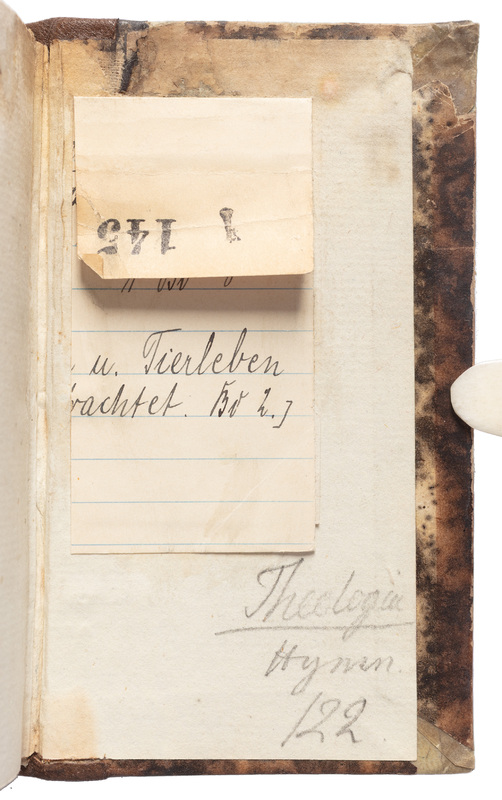 145
u. Tierleben
rachtet. Bd 2.]
Theologie
Hymn.
122.